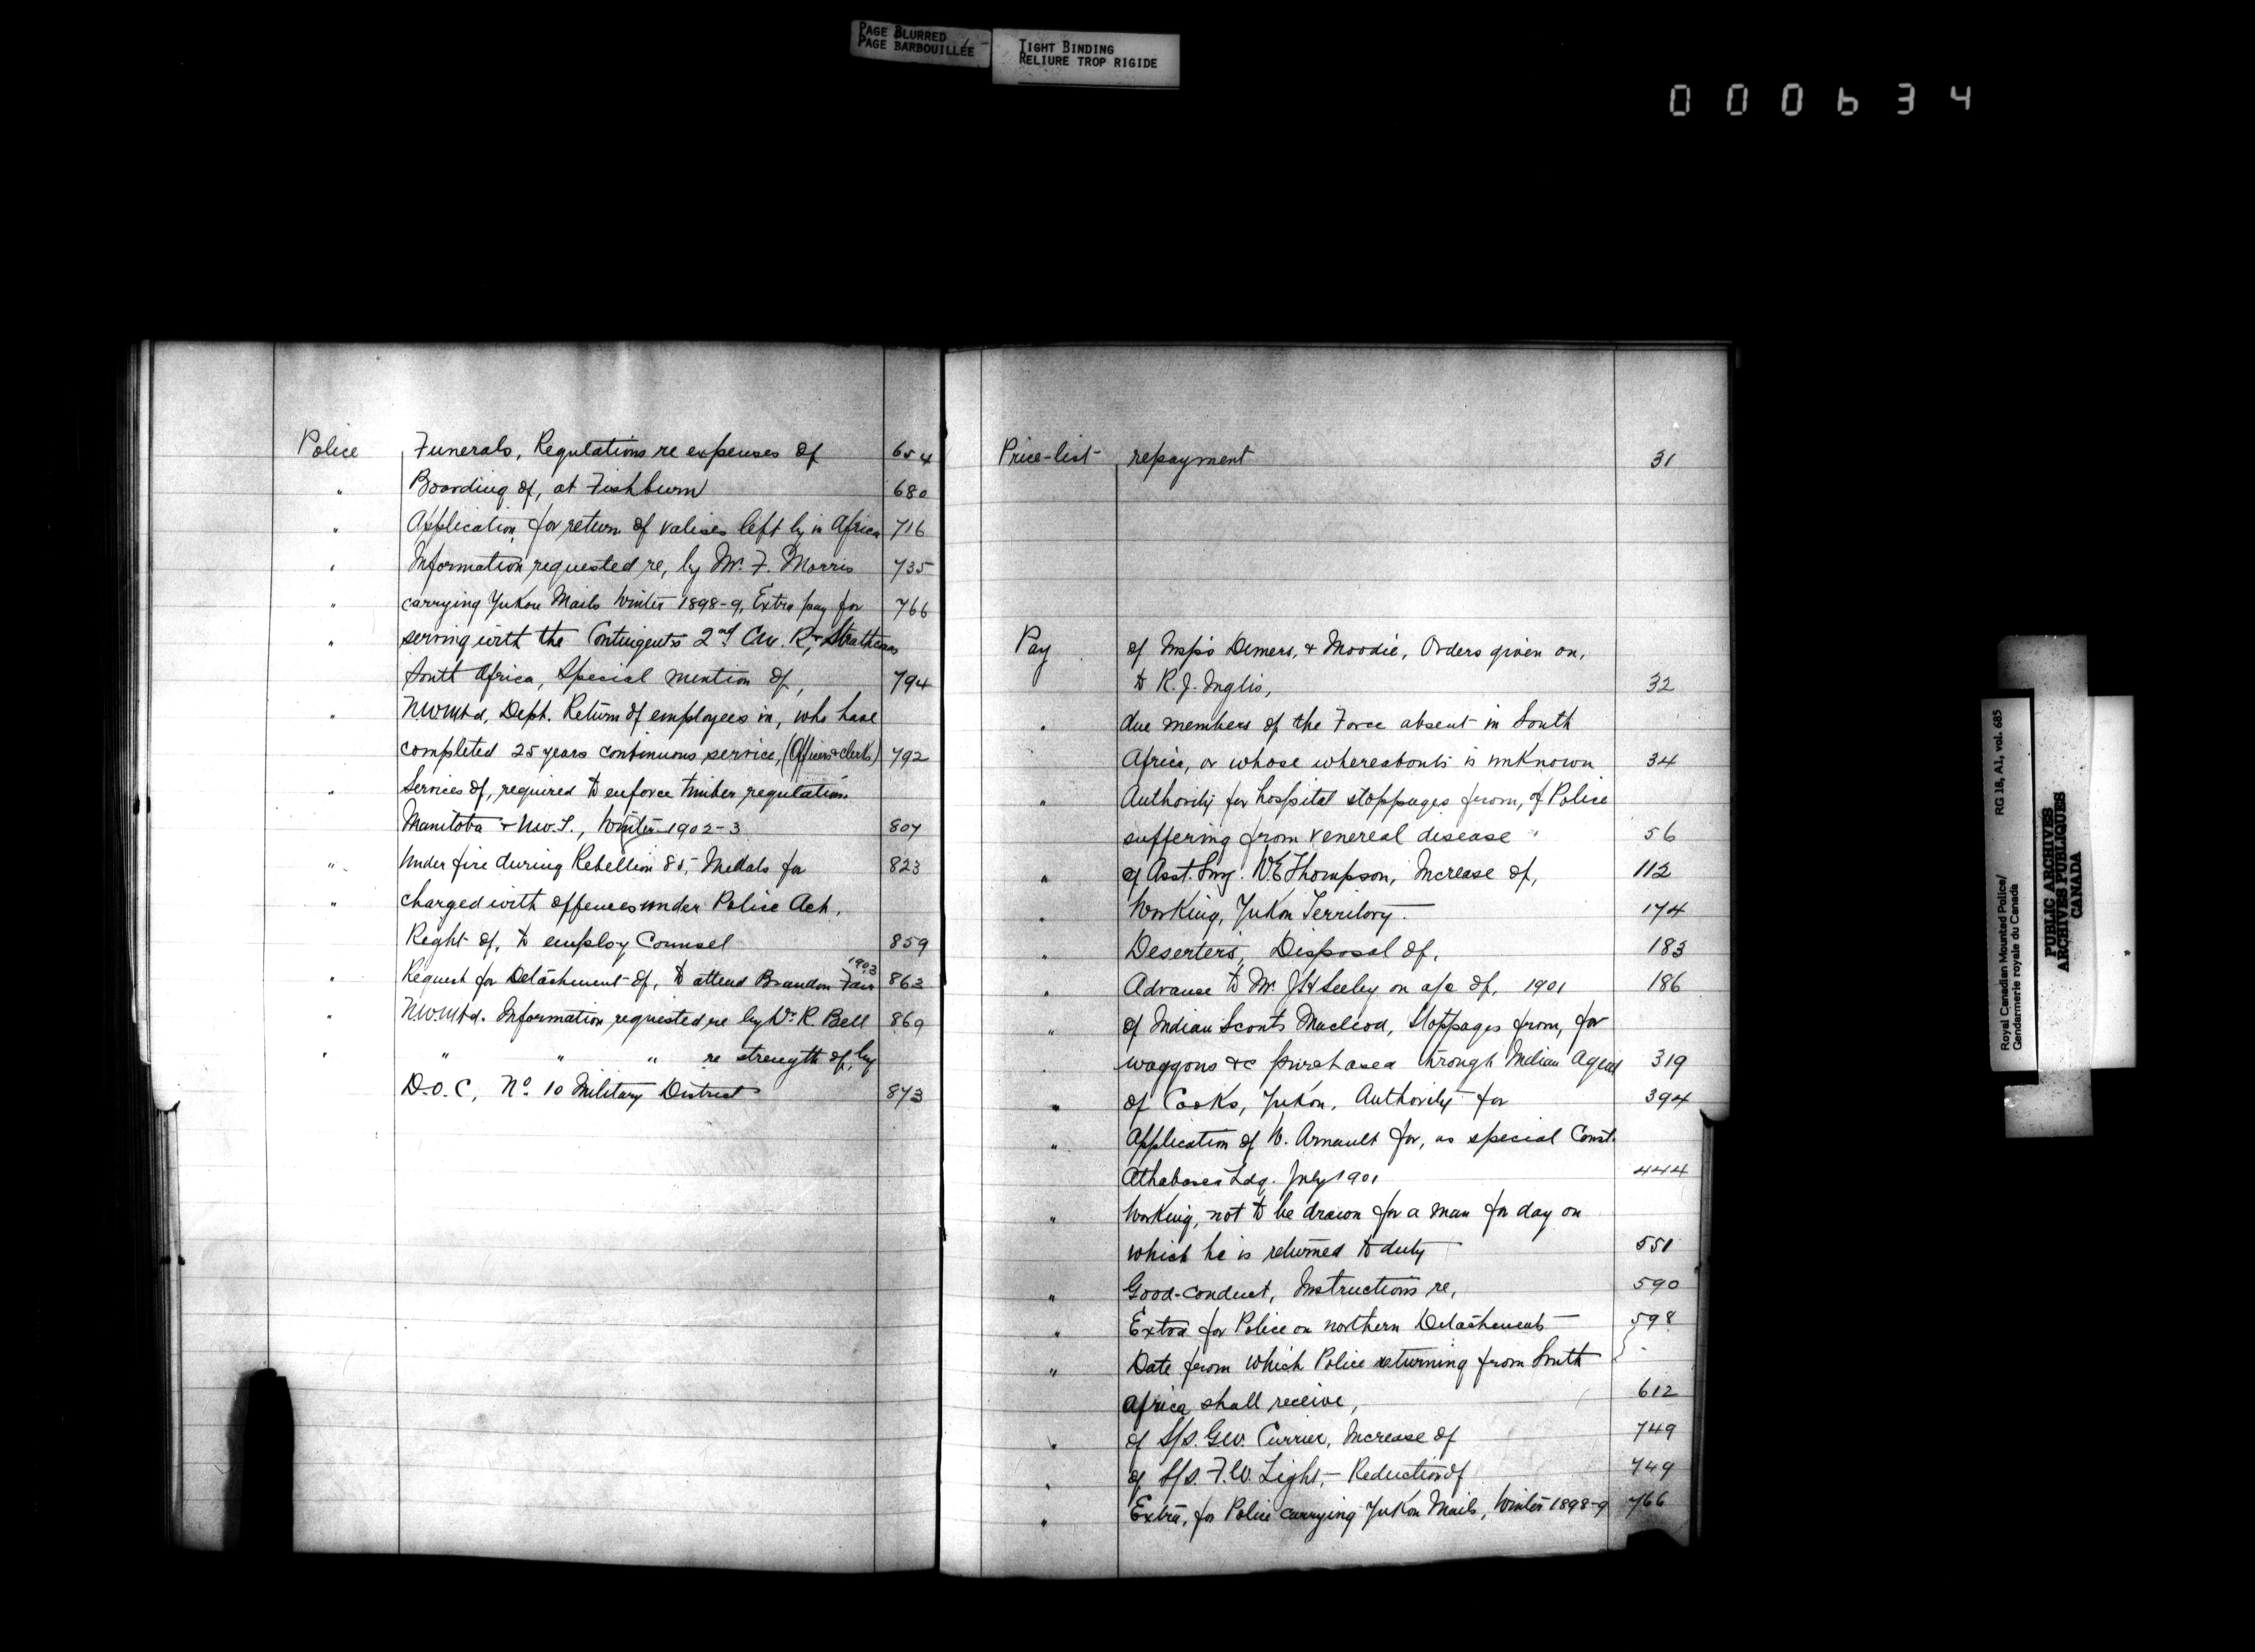 PAGE BLURRED
PAGE BARBOUILLÉE
TIGHT BINDING
RELIURE TROP RIGIDE
000634
Police Funerals, Regulations re expenses of 654
" Boarding of, at Fishburn 680
" Application for return of valises left by in Africa 716
" Information requested re, by Mr. F. Morris 735
" carrying Yukon Mails Winter 1898-9, Extra pay for 766
" serving with the Contingents 2nd Can. R, Strathcona
South Africa, Special mention of, 794
" N.W.M.Pd, Dept. Return of employees in, who have
completed 25 years continuous service, (Officers & clerks) 792
" Services of, required to enforce timber regulations
Manitoba & N.W.T., Winter 1902-3 807
" Under fire during Rebellion 85, Medals for 823
" charged with offences under Police Act,
Right of, to employ Counsel 859
" Request for Detachment of, to attend Brandon Fair 1903 863
" N.W.M.Pd. Information requested re by Dr. R. Bell 869
" " " " re strength of, by
D.O.C, No. 10 Military District 873
Price-list repayment 31
Pay of Insp's Demers, & Moodie, Orders given on,
to R. J. Inglis, 32
" due members of the Force absent in South
Africa, or whose whereabouts is unknown 34
" Authority for hospital stoppages from, of Police
suffering from venereal disease 56
" of Asst. Surg. W.E Thompson, Increase of, 112
" Working, Yukon Territory. 174
" Deserters, Disposal of. 183
" Advance to Mr. J H Seeley on a/c of, 1901 186
" of Indian Scouts Macleod, Stoppages from, for
" waggons &c purchased through Indian Agent 319
" of Cooks, Yukon, Authority for 394
" Application of W. Arnault for, as special Const.
Athabasca Ldg. July 1901 444
" Working, not to be drawn for a man for day on
which he is returned to duty 551
" Good-conduct, Instructions re, 590
" Extra for Police on northern Detachments 598
" Date from which Police returning from South
Africa shall receive, 612
" of S/S. G.W. Currier, Increase of 749
" of S/S. F.W. Light,- Reduction of 749
" Extra, for Police carrying Yukon Mails, Winter 1898-9 766
Royal Canadian Mounted Police/ RG 18, A1, vol. 685
Gendarmerie royale du Canada
PUBLIC ARCHIVES
ARCHIVES PUBLIQUES
CANADA